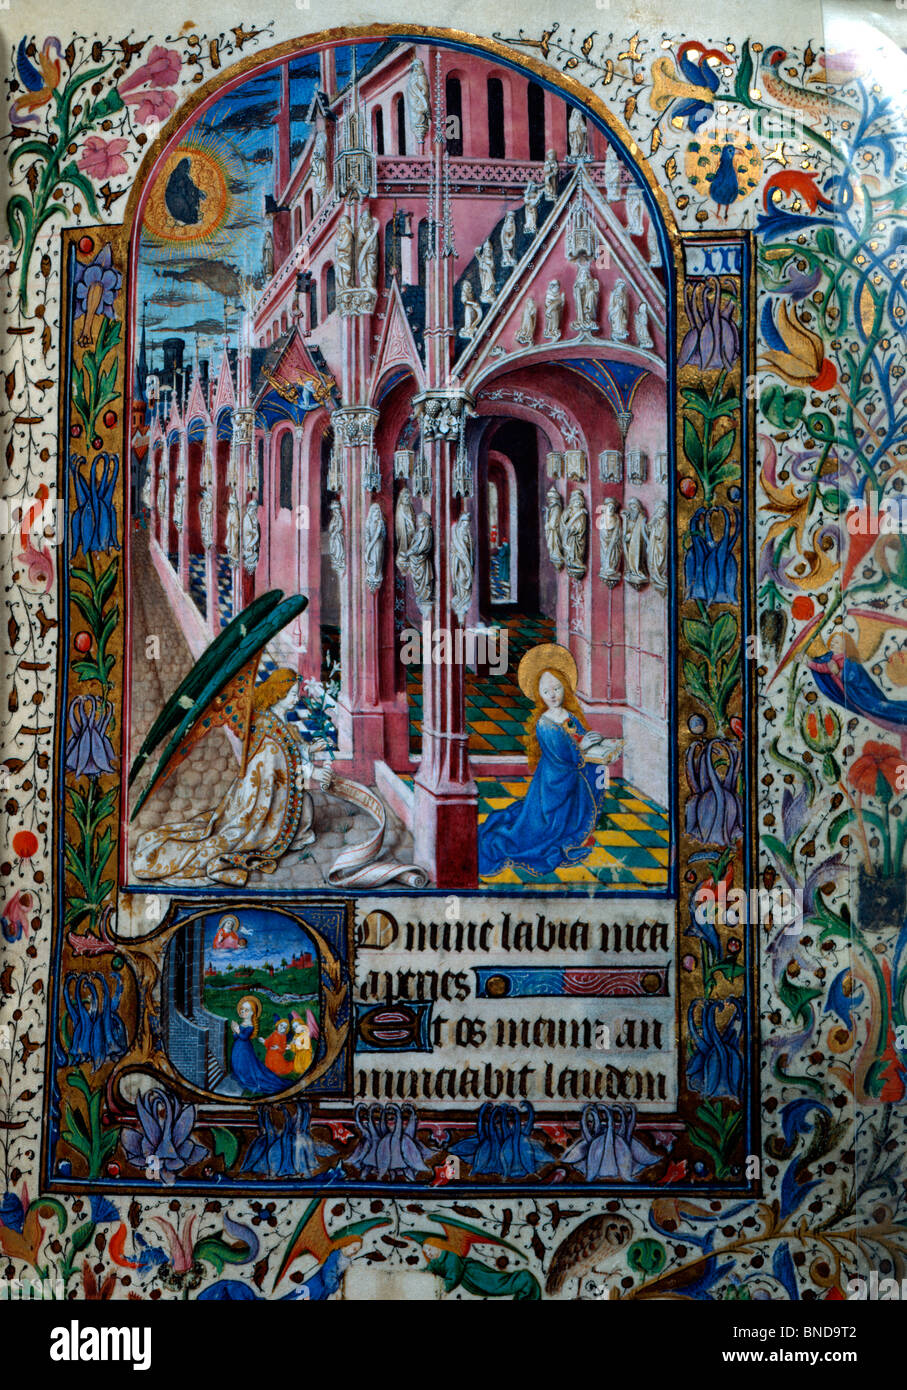 Domine labia mea
aperies
Et os meum an
nunciabit laudem
alamy
Image ID: BND9T2
www.alamy.com